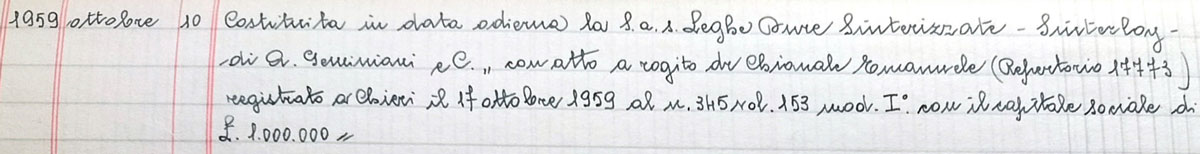 1959 ottobre 10 Costituita in data odierna la S.a.s. Leghe Dure Sinterizzate - Sinterloy -
di A. Geminiani e C. „ con atto a rogito dr Chianale Romanuele (Repertorio 17773)
registrato a Chieri il 17 ottobre 1959 al n. 345 vol. 153 mod. I° con il capitale sociale di
£. 1.000.000 =